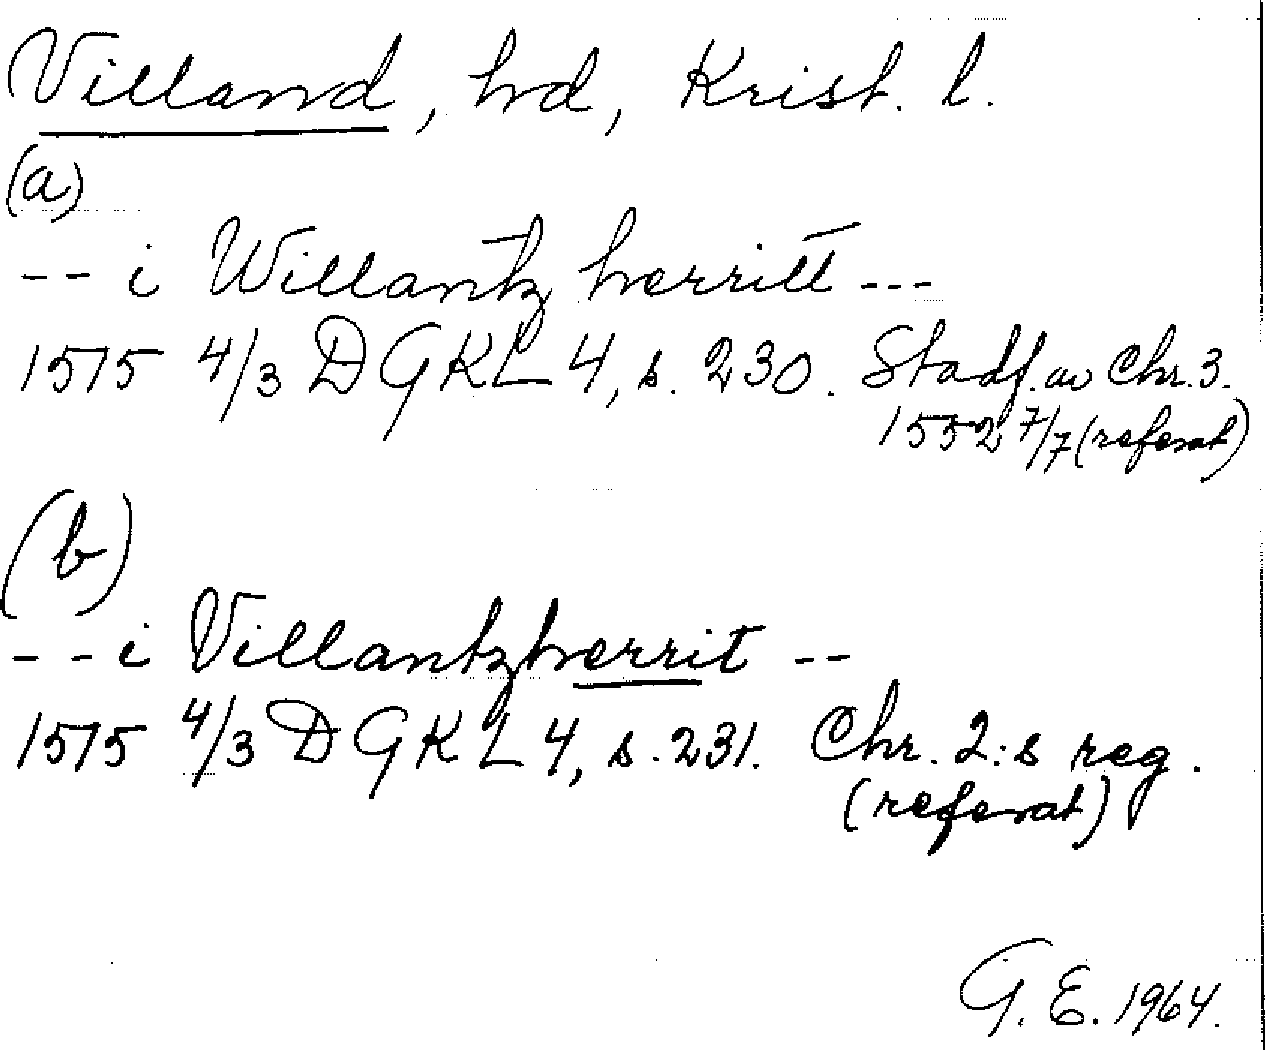 Villand, hd, Krist. l.
(a)
-- i Willantz herritt ---
1575 4/3 DGKL 4, s. 230. Stadf. av Chr. 3.
1552 7/7 (referat)
(b)
-- i Villantzherrit --
1575 4/3 DGKL 4, s. 231. Chr. 2:s reg.
(referat)
G. E. 1964.